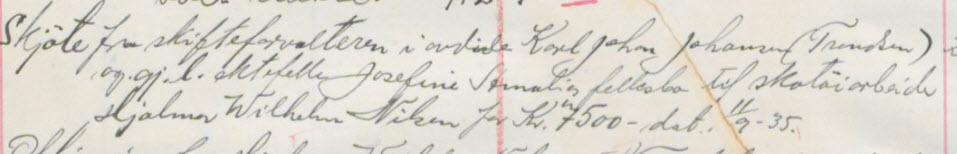 Skjöte fra skifteforvalteren i avdöde Karl Johan Johansen (Trondsen) i
og gj.l. ektefelle Josefine Amalias fellesbo til skotöiarbeider
Hjalmar Wilhelm Nilsen for Kr. 7500- dat. 11/9-35.